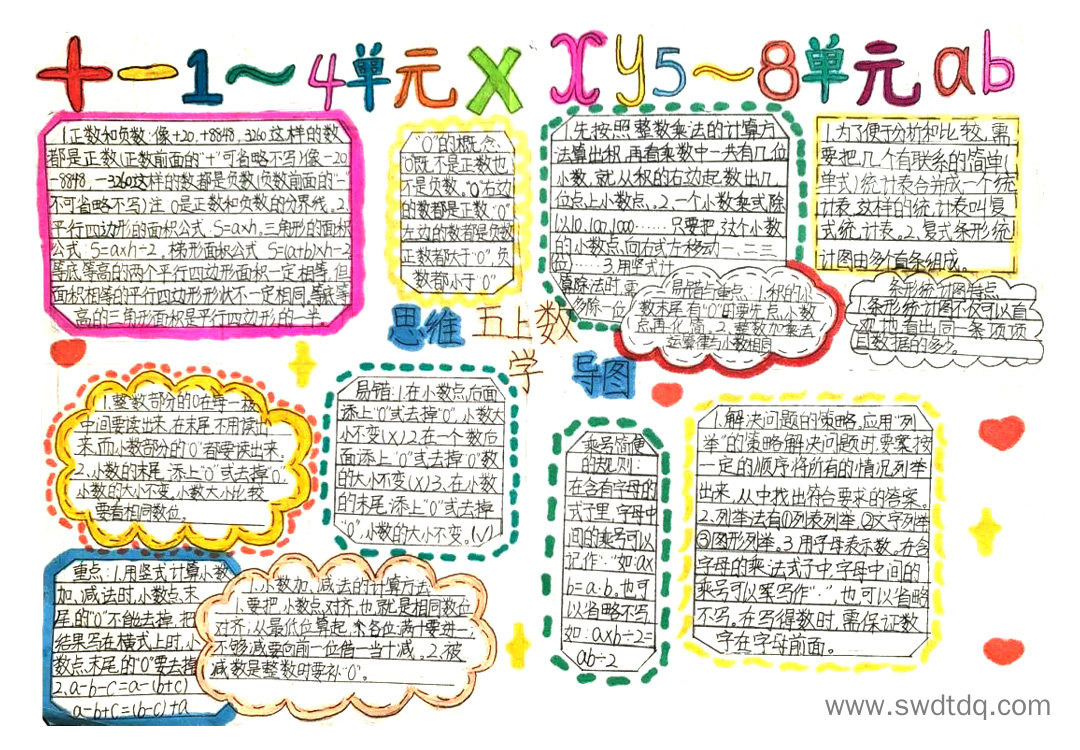 十一1～4单元X
xy5～8单元ab
1.正数和负数:像+20,+8848,3260这样的数
都是正数(正数前面的"+"可省略不写)像-20
-8848,-3260这样的数都是负数(负数前面的"-"
不可省略不写)注 0是正数和负数的分界线。2.
平行四边形的面积公式 S=a×h,三角形的面积
公式 S=a×h÷2,梯形面积公式 S=(a+b)×h÷2
等底等高的两个平行四边形面积一定相等,但
面积相等的平行四边形形状不一定相同,等底等
高的三角形面积是平行四边形的一半
"0"的概念、
0既不是正数也
不是负数。"0"右边
的数都是正数"0"
左边的数都是负数
正数都大于"0",负
数都小于"0"
1.先按照整数乘法的计算方
法算出积,再看乘数中一共有几位
小数,就从积的右边起,数出几
位点上小数点。2.一个小数乘或除
以10、100、1000……只要把这个小数
的小数点向右或左移动一、二、三
位……3.用竖式计
算除法时,需
多除一位
1.为了便于分析和比较,需
要把几个有联系的简单(
单式)统计表合并成一个统
计表,这样的统计表叫复
式统计表。2.复式条形统
计图由多个直条组成。
易错与重点:1.积的小
数末尾有"0"的要先点小数
点,再化简。2.整数加乘法
运算律与小数相同
条形统计图特点
条形统计图不仅可以直
观地看出同一条项项
目数据的多少。
思维 五上数
学 导图
1.整数部分的0在每一级
中间要读出来,在末尾不用读出
来,而小数部分的"0"都要读出来。
2.小数的末尾添上"0"或去掉"0",
小数的大小不变,小数大小比较
要看相同数位。
易错:1.在小数点后面
添上"0"或去掉"0",小数大
小不变(×)2.在一个数后
面添上"0"或去掉"0"数
的大小不变(×)3.在小数
的末尾添上"0"或去掉
"0",小数的大小不变。(√)
乘号简便
的规则:
在含有字母的
式子里,字母中
间的乘号可以
记作"·"如:a×
b=a·b,也可
以省略不写
如:a×b÷2=
ab÷2
1.解决问题的策略,应用"列
举"的策略解决问题时,要案按
一定的顺序将所有的情况列举
出来,从中找出符合要求的答案。
2.列举法有①列表列举,②文字列举
③图形列举。3.用字母表示数。在含
字母的乘法式子中,字母中间的
乘号可以军写作"·",也可以省略
不写。在写得数时,需保证数
字在字母前面。
重点:1.用竖式计算小数
加、减法时,小数点末
尾的"0"不能去掉,把
结果写在横式上时,小
数点末尾的"0"要去掉
2.a-b-c=a-(b+c)
a-b+c=(b-c)+a
1.小数加、减法的计算方法
1.要把小数点对齐,也就是相同数位
对齐;从最低位算起,各位满十要进一;
不够减要向前一位借一当十减。2.被
减数是整数时要补"0"。
www.swdtdq.com